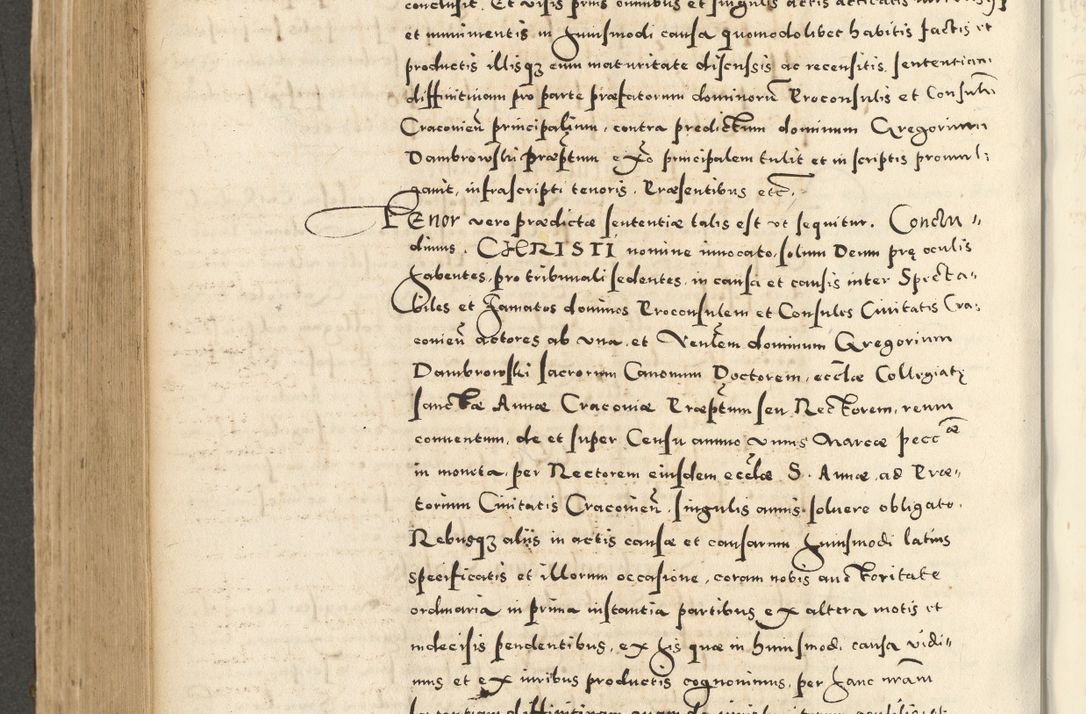 conclusit. Et visis prius omnibus et singulis actis actitatis
et munimentis in huiusmodi causa quomodolibet habitis factis et
productis illisqȝ cum maturitate discussis ac recensitis, sententiam
diffinitivam pro parte præfatorum dominorū Proconsulis et Consulū
Cracovieñ principalium, contra predictum dominum Gregorium
Dambrowski præptum ex ẽo principalem tulit et in scriptis promul:
gavit, infrascripti tenoris. Præsentibus etc.
Tenor vero prædictæ sententiæ talis est ut sequitur. Conclu=
dimus. CHRISTI nomine invocato, solum Deum prę oculis
habentes, pro tribunali sedentes, in causa et causis inter Specta=
biles et Famatos dominos Proconsulem et Consules Civitatis Cra:
covieñ actores ab una, et Venłem dominum Gregorium
Dambrowski sacrorum Canonum Doctorem, ecclæ Collegiatę
sanctæ Annæ Cracoviæ Præptum seu Rectorem, reum
conventum, de et super Censu annuo unius Marcæ pecc æ
in moneta, per Rectorem eiusdem ecclæ S. Annæ, ad Præ=
torium Civitatis Cracovieñ, singulis annis solvere obligato.
Rebusqȝ aliis in actis causæ et causarum huiusmodi latius
specificatis et illorum occasione, coram nobis auctoritate
ordinaria in prima instantia partibus ex altera motis et
indecisis pendentibus, ex his quæ in huiusmodi causa vidi=
mus et ex iuribus productis cognovimus, per hanc nram̃
sententiam diffinitivam quam